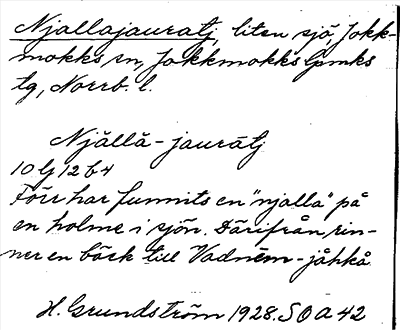 Njallajauratj, liten sjö, Jokk-
mokks sn, Jokkmokks lpmks
tg, Norrb. l.
Njållå-jauratj
10 Ij 12 b 4
Förr har funnits en "njalla" på
en holme i sjön. Därifrån rin-
ner en bäck till Vadnēm-jåhkå
H. Grundström 1928. SOA 42